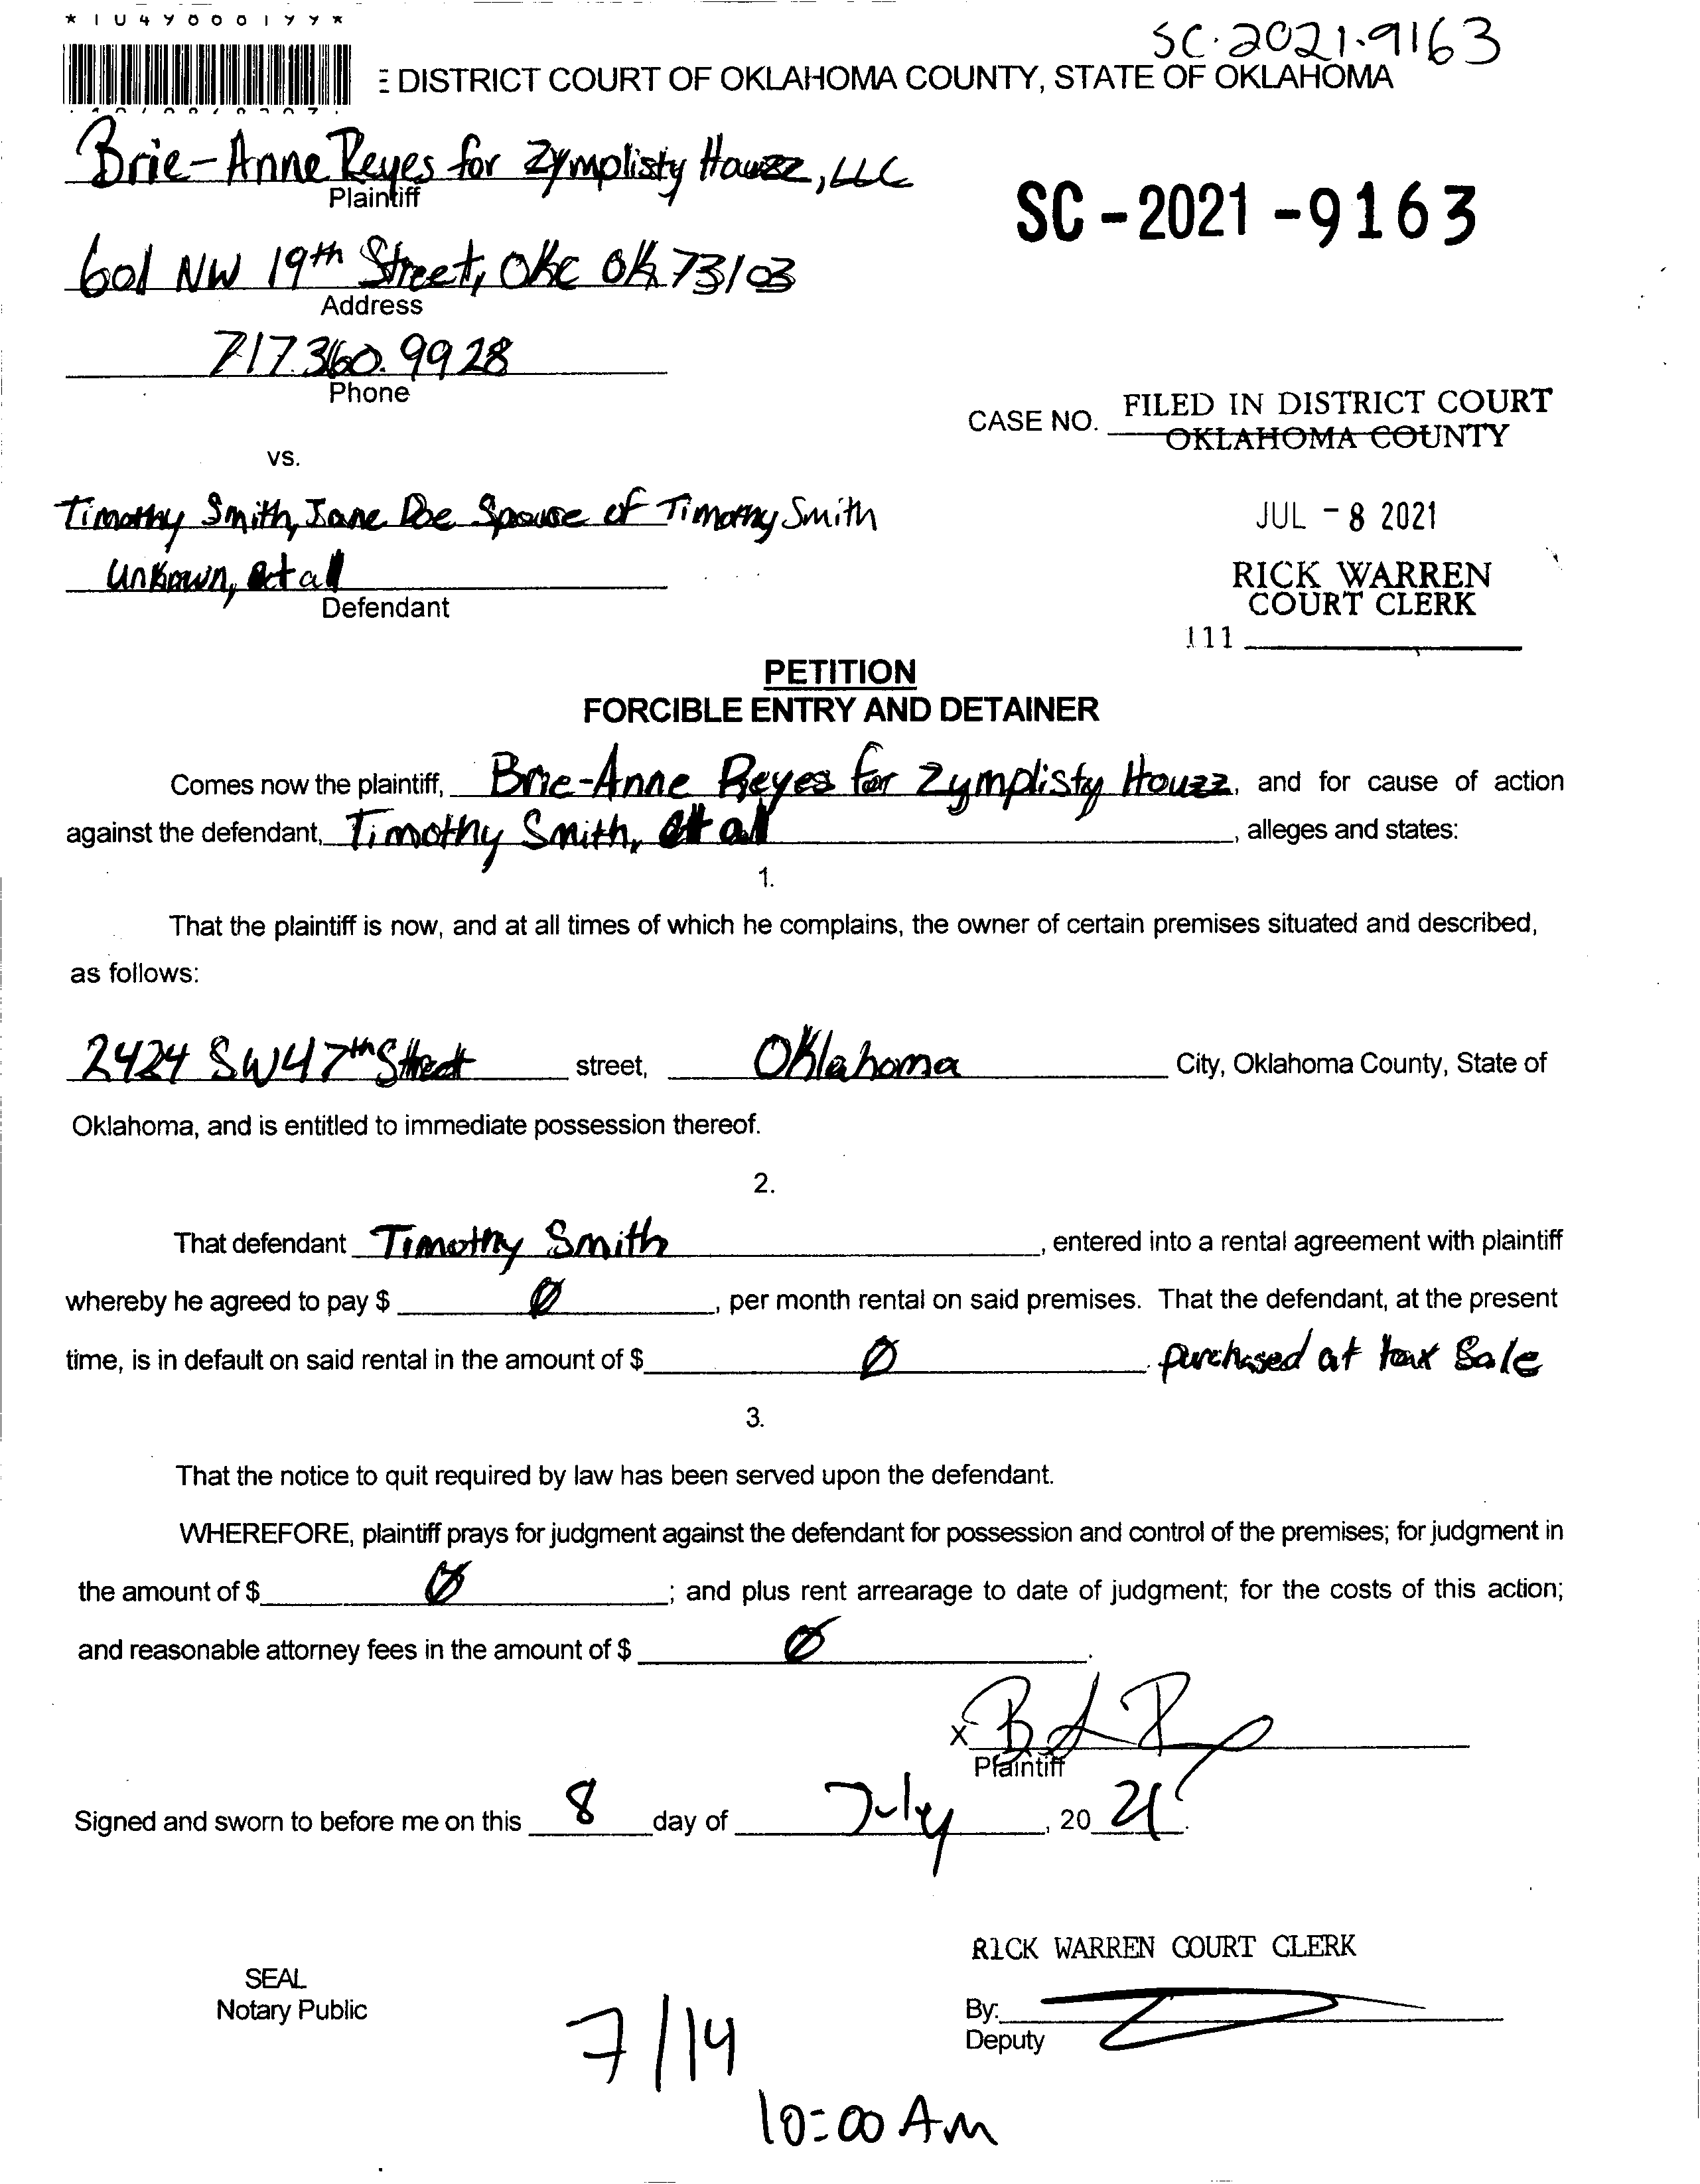 SC-2021-9163
DISTRICT COURT OF OKLAHOMA COUNTY, STATE OF OKLAHOMA
Brie-Anne Reyes for Zymplisty Houzz, LLC
Plaintiff
SC-2021-9163
601 NW 19th Street, OKC OK 73103
Address
717.360.9928
Phone
CASE NO.
FILED IN DISTRICT COURT
OKLAHOMA COUNTY
vs.
Timothy Smith, Jane Doe Spouse of Timothy Smith
JUL -8 2021
Unknown, et all
Defendant
RICK WARREN
COURT CLERK
111
PETITION
FORCIBLE ENTRY AND DETAINER
Comes now the plaintiff, Brie-Anne Reyes for Zymplisty Houzz, and for cause of action
against the defendant, Timothy Smith, et all, alleges and states:
1.
That the plaintiff is now, and at all times of which he complains, the owner of certain premises situated and described,
as follows:
2424 SW 47th Street street, Oklahoma City, Oklahoma County, State of
Oklahoma, and is entitled to immediate possession thereof.
2.
That defendant Timothy Smith, entered into a rental agreement with plaintiff
whereby he agreed to pay $ Ø, per month rental on said premises. That the defendant, at the present
time, is in default on said rental in the amount of $ Ø. purchased at tax Sale
3.
That the notice to quit required by law has been served upon the defendant.
WHEREFORE, plaintiff prays for judgment against the defendant for possession and control of the premises; for judgment in
the amount of $ Ø; and plus rent arrearage to date of judgment; for the costs of this action;
and reasonable attorney fees in the amount of $ Ø.
X
Plaintiff
Signed and sworn to before me on this 8 day of July, 2021.
RICK WARREN COURT CLERK
SEAL
Notary Public
By:
Deputy
7/14
10:00 AM